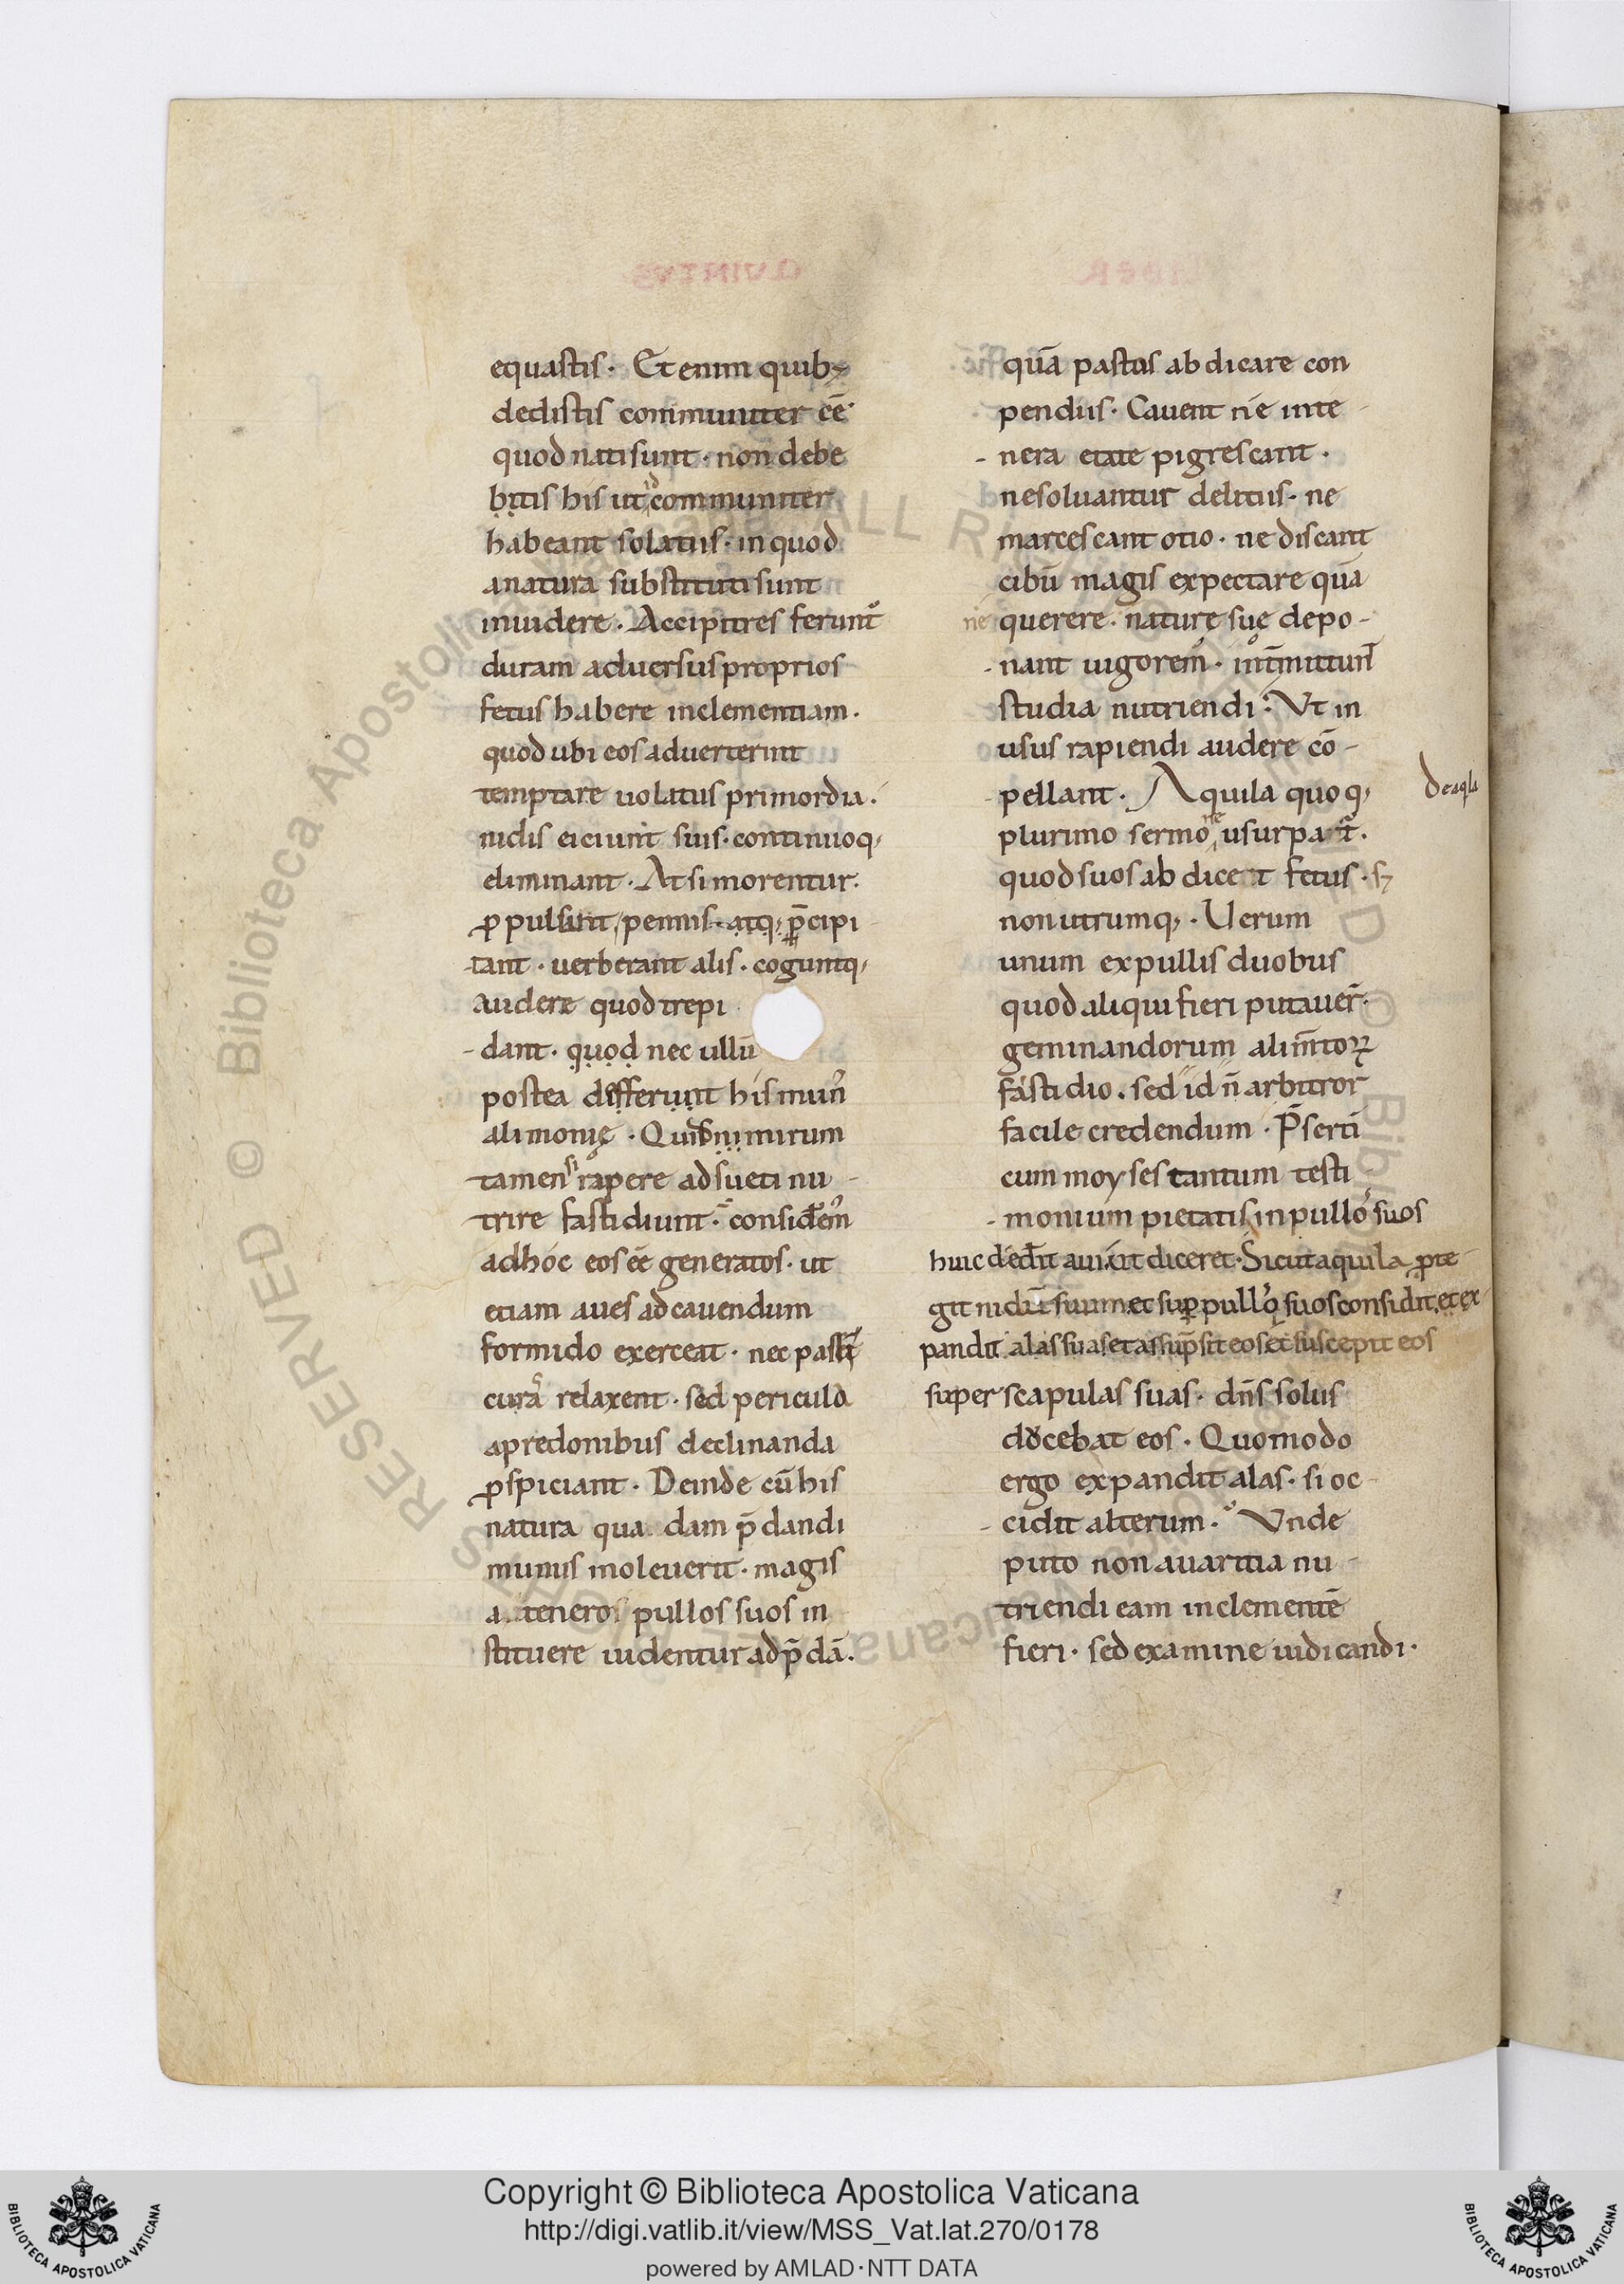 equastis· Et enim quib;
dedistis communiter cē·
quod nati sunt· non debe
bitis his ut id communiter
habeant solatiis· in quod
a natura substituti sunt
inuidere· Accipitres ferunt᷑
duram aduersus proprios
fetus habere inclementiam·
quod ubi eos aduerterint
temptare uolatus primordia·
nidis eiciunt suis· continuoq;
eliminant· At si morentur·
ꝓpulsant pennis· atq; p̄cipi
tant· uerberant alis· coguntq;
audere quod trepi
dant· quod nec ullū
postea differunt his mun̄
alimonię· Quid nimirum
tamen si rapere adsueti nu-
trire fastidiunt· considem̄
ad hoc eos eē generatos· ut
etiam aues ad cauendum
formido exerceat· nec
curā relaxent· sed pericula
a predonibus declinanda
ꝑspiciant· Deinde cū his
natura qua dam p̄dandi
munus inoleuerit· magis
a teneros pullos suos in
stituere uidentur ad p̄dā·
quā pastus abdicare con
pendiis· Cauent ne in te-
-nera etate pigrescant·
ne soluantur delitiis· ne
marcescant otio· ne discant
cibū magis expectare quā
ne querere· nature suę depo-
-nant uigorem· int̄mittunt̄
studia nutriendi· Vt in
usus rapiendi audere cō-
-pellant· Aquila quoq; De aq̇la
plurimo sermone usurpat̄·
quod suos abdicet fetus· s;
non utrumq;· Uerum
unum ex pullis duobus
quod aliqui fieri putauer̄·
geminandorum alim̄toꝝ
fastidio· sed id n̄ arbitror
facile credendum· P̄sertī
cum moyses tantum testi
-monium pietatis in pullos suos
huic dederit aui ut diceret· Sicut aquila ꝓte-
git nidū suum et suꝑ pullos suos considit, et ex-
pandit alas suas et assūpsit eos et suscepit eos
super scapulas suas· dn̄s solus
docebat eos· Quomodo
ergo expandit alas· si oc-
-cidit alterum· Vnde
puto non auaritia nu-
triendi eam inclementē
fieri· sed examine iudicandi·
Copyright © Biblioteca Apostolica Vaticana
http://digi.vatlib.it/view/MSS_Vat.lat.270/0178
powered by AMLAD·NTT DATA
BIBLIOTECA APOSTOLICA VATICANA
BIBLIOTECA APOSTOLICA VATICANA